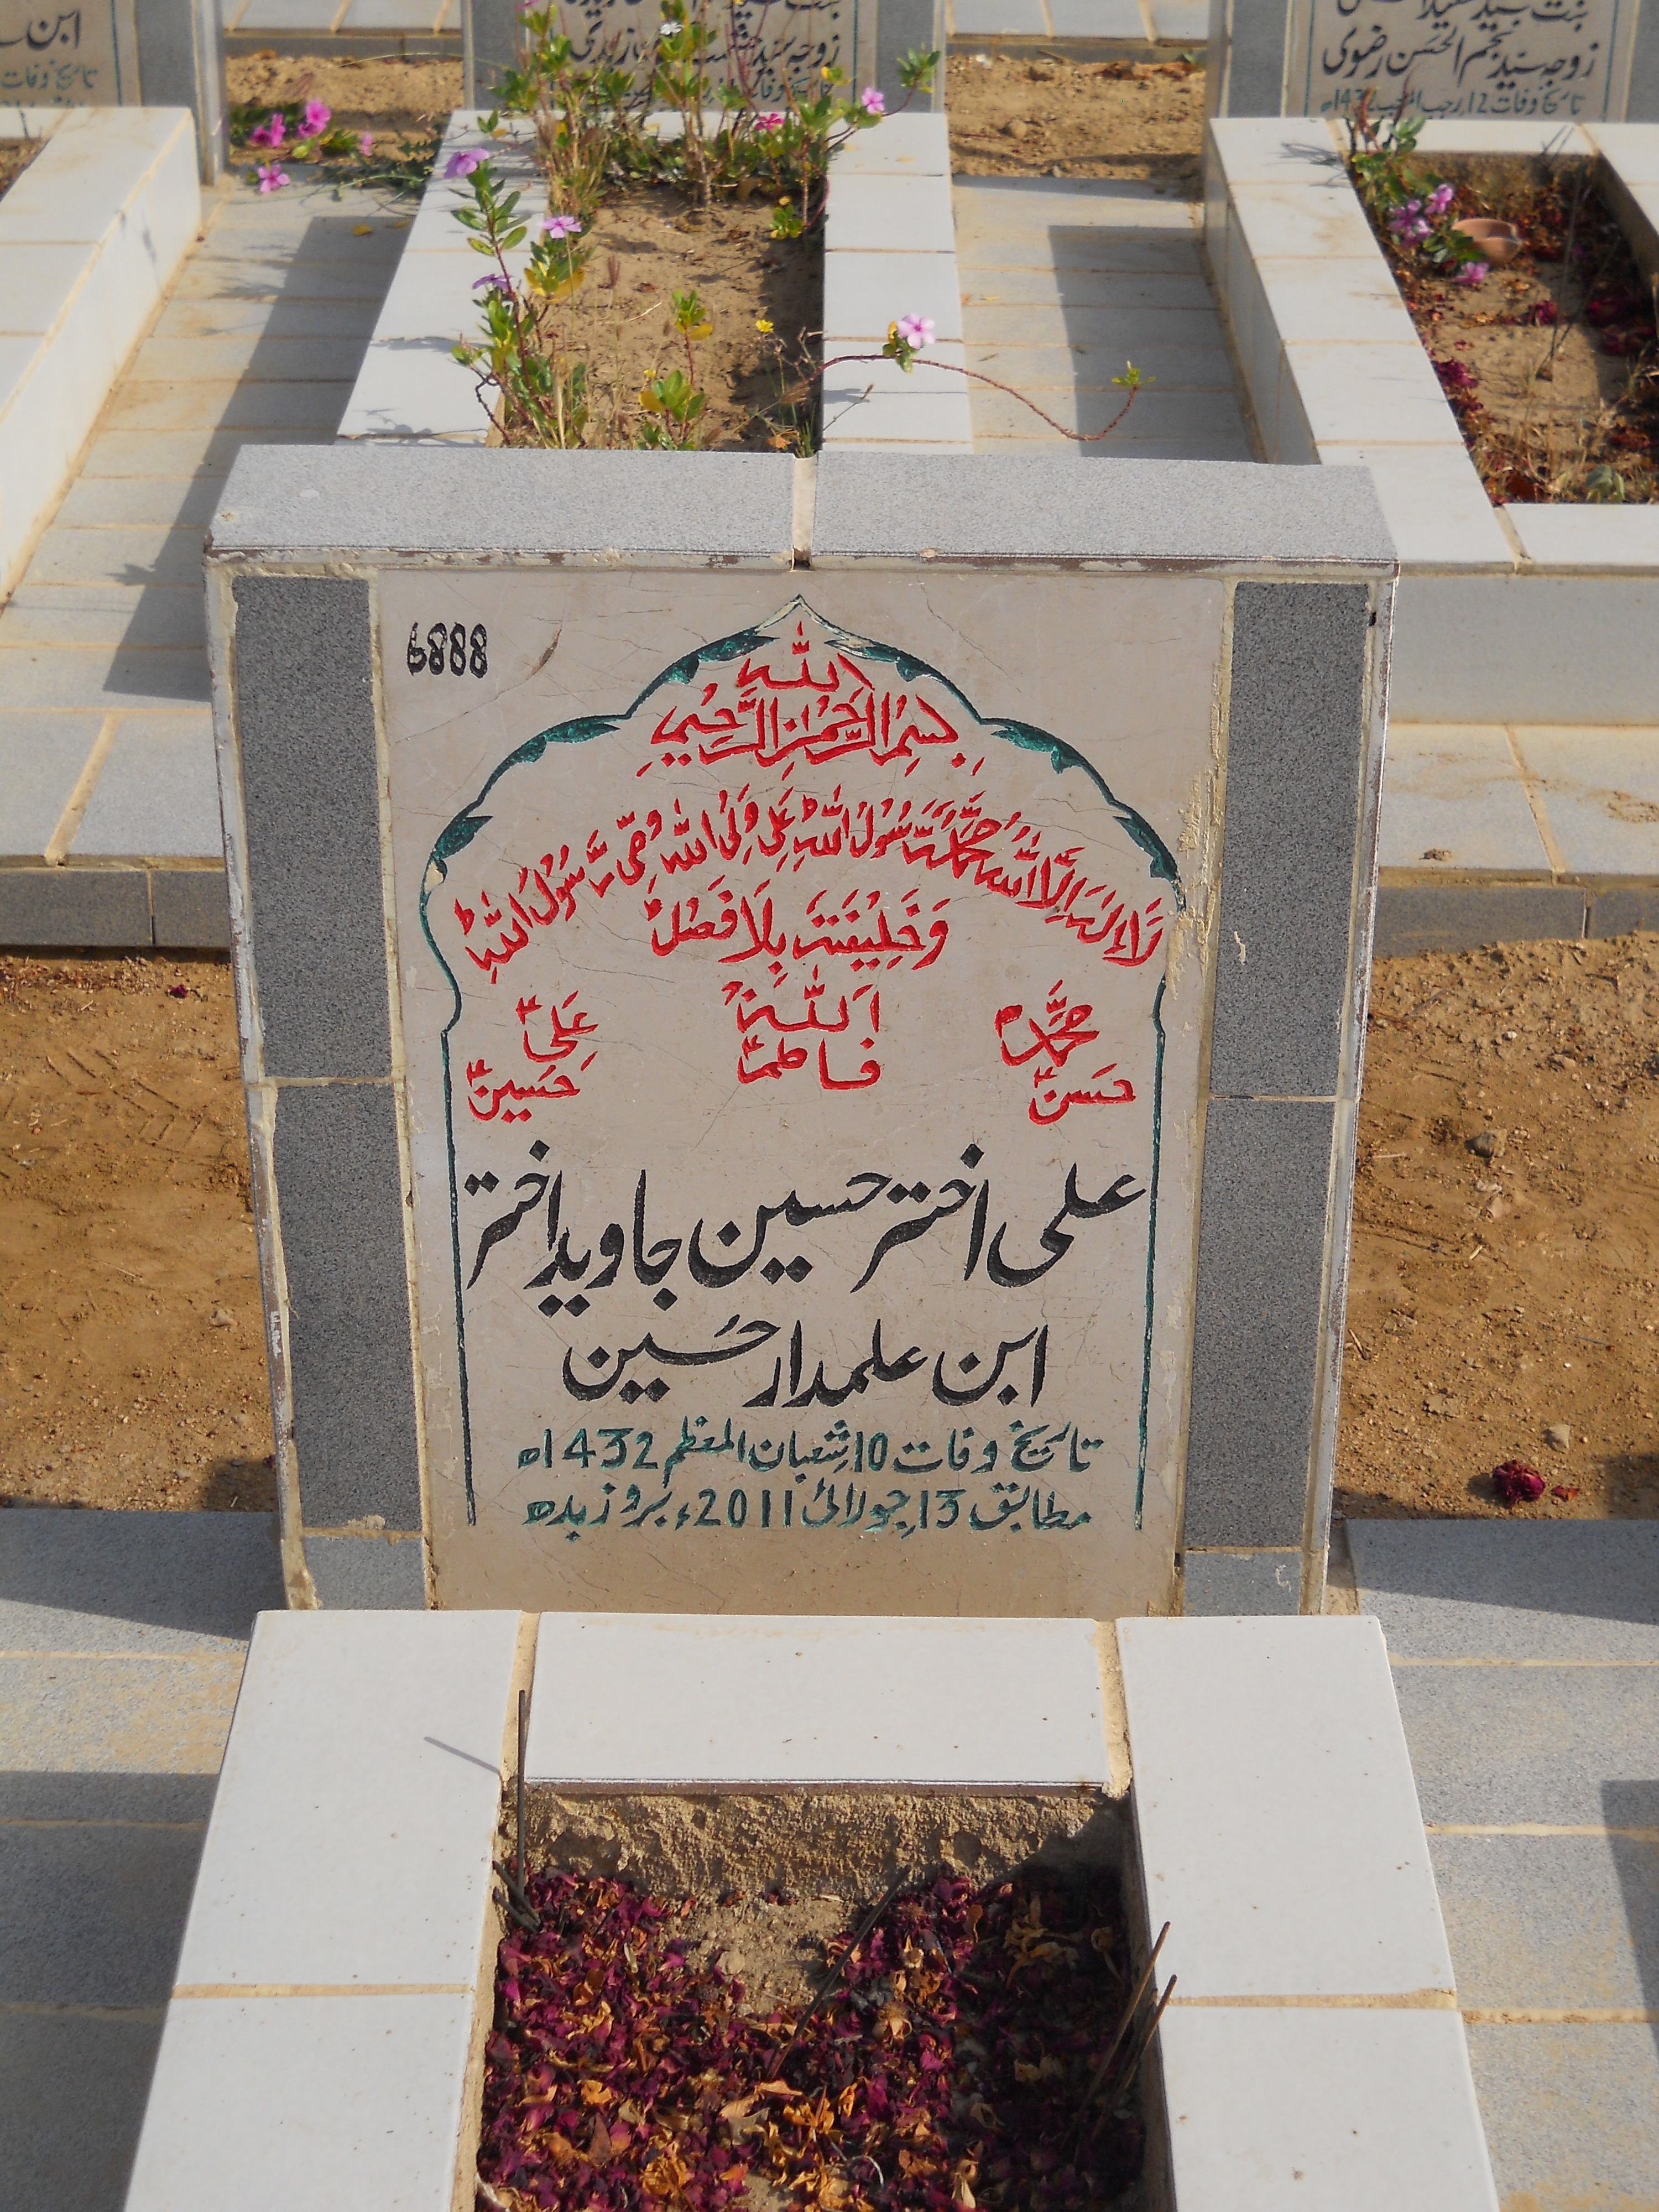 ابن
تاریخ وفات
زوجہ سید
بنت سید
زوجہ سید نجم الحسن رضوی
تاریخ وفات 12 رجب المرجب 143
6888
اللہ
بِسْمِ الرَّحْمٰنِ الرَّحِیْمِ
لَا اِلٰہَ اِلَّا اللہُ مُحَمَّدٌ رَّسُوْلُ اللہِ عَلِیٌّ وَلِیُّ اللہِ وَصِیُّ رَسُوْلُ اللہِ
وَخَلِیْفَتَہٗ بِلَا فَصْلٌ
مُحَمَّدؐ اَللہُ عَلِیؑ
حَسَنؑ فاطمہؑ حَسینؑ
علی اختر حسین جاوید اختر
ابن علمدار حُسین
تاریخ وفات 10 شعبان المعظم 1432ھ
مطابق 13 جولائی 2011ء بروز بدھ